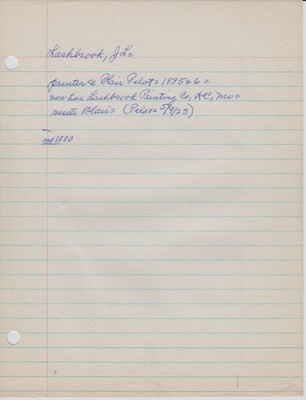 Lashbrook, J L=
printer @ Blair Pilot= 1885 & 6=
now has Lashbrook Printing Co, KC, Mo=
visits Blair= (Pilot= 5/9/23)